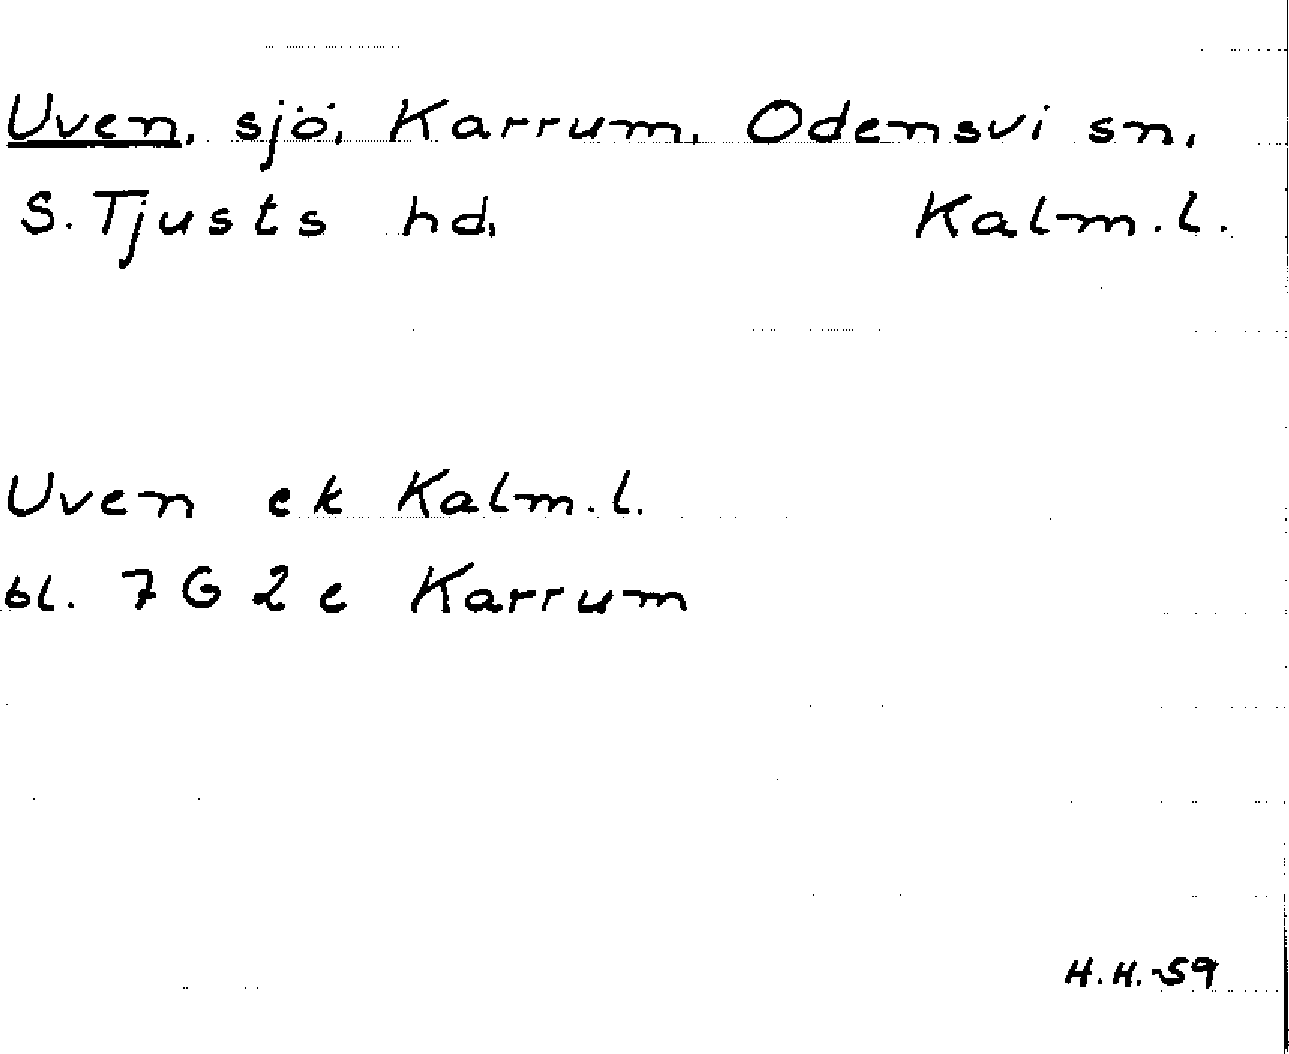 Uven, sjö, Karrum, Odensvi sn,
S. Tjusts hd, Kalm. l.
Uven ek Kalm. l.
bl. 7 G 2 e Karrum
H. H. -59